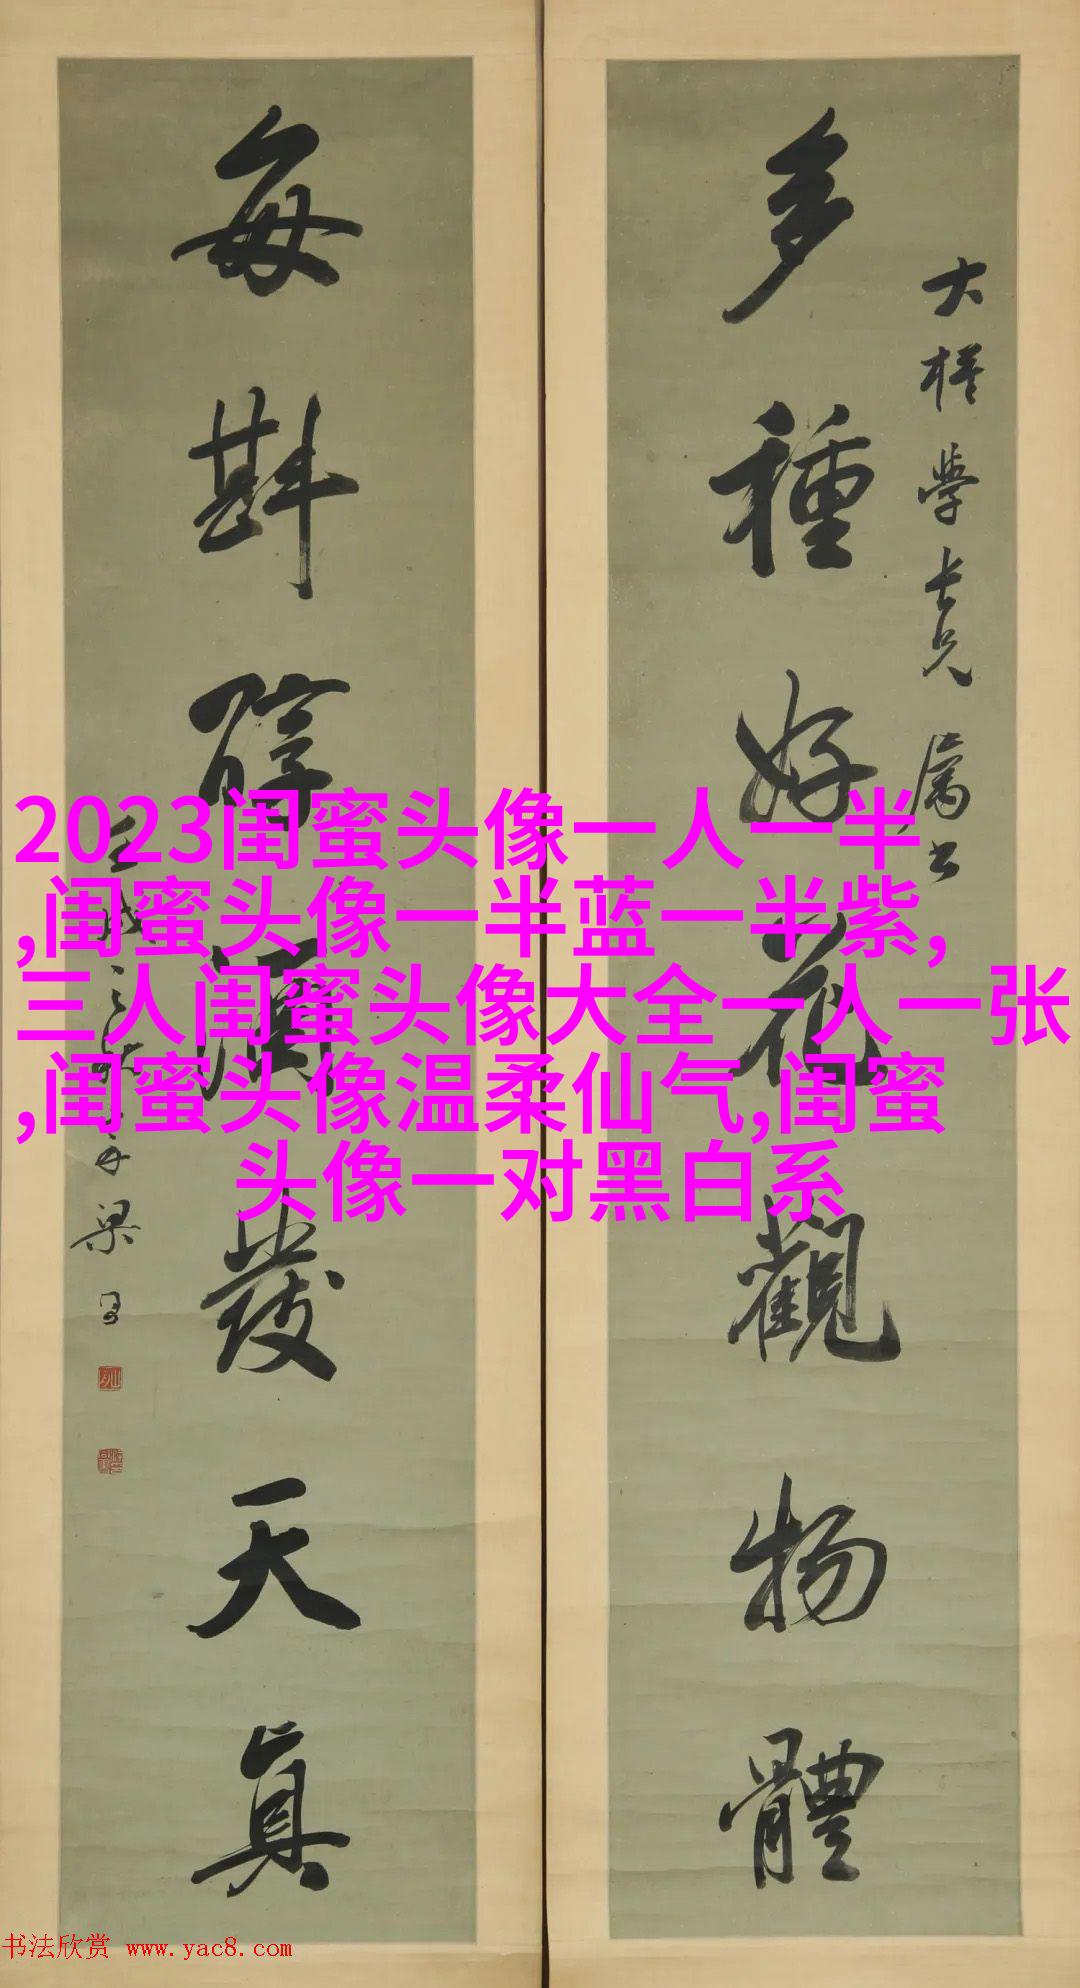 多種好花觀物體
大槎學長兄屬書
每斟醇酒發天真
梁
2023闺蜜头像一人一半
,闺蜜头像一半蓝一半紫,
三人闺蜜头像大全一人一张
,闺蜜头像温柔仙气,闺蜜
头像一对黑白系
书法欣赏 www.yac8.com